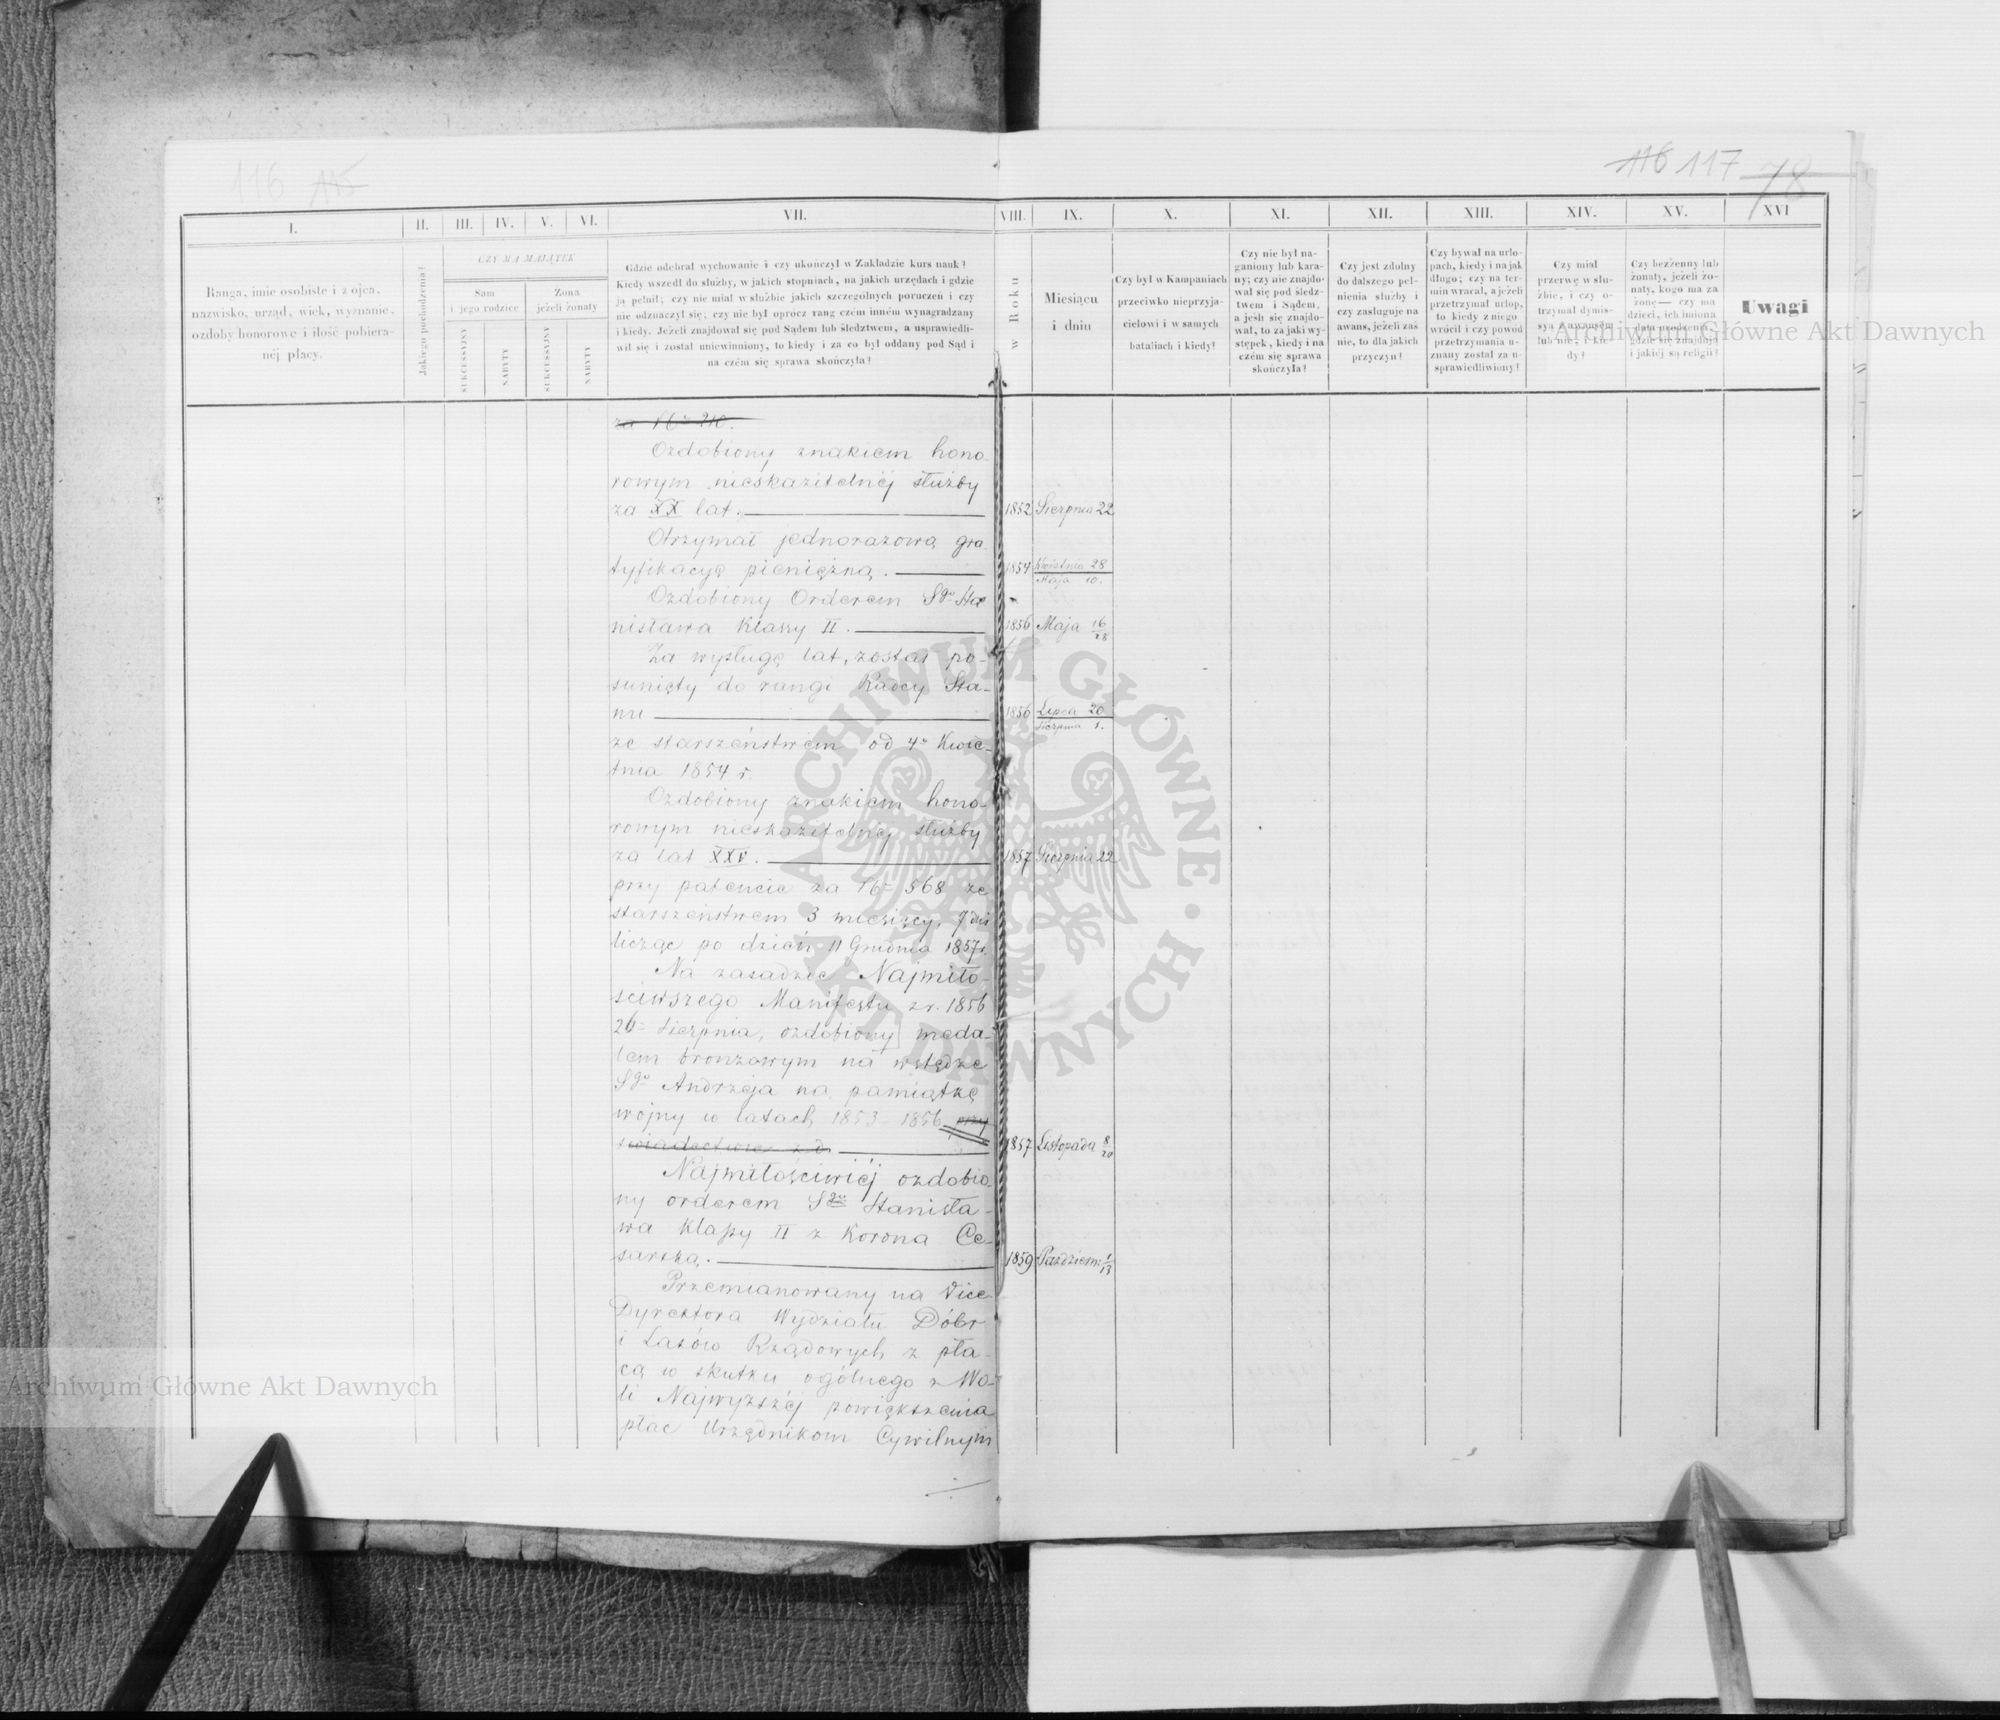 116 115
116 117 78
I.
II.
III.
IV.
V.
VI.
VII.
VIII.
IX.
X.
XI.
XII.
XIII.
XIV.
XV.
XVI
Ranga, imie osobiste i z ojca,
nazwisko, urząd, wiek, wyznanie,
ozdoby honorowe i ilość pobiera-
nej płacy.
Jakiego pochodzenia?
CZY MA MAJĄTEK
Sam
i jego rodzice
Żona
jeżeli żonaty
SUKCESSYJNY
NABYTY
SUKCESSYJNY
NABYTY
Gdzie odebrał wychowanie i czy ukończył w Zakładzie kurs nauk?
Kiedy wszedł do służby, w jakich stopniach, na jakich urzędach i gdzie
ją pełnił; czy nie miał w służbie jakich szczególnych poruczeń i czy
nie odznaczył się; czy nie był oprócz rang czém inném wynagradzany
i kiedy. Jeżeli znajdował się pod Sądem lub śledztwem, a usprawiedli-
wił się i został uniewinniony, to kiedy i za co był oddany pod Sąd i
na czém się sprawa skończyła?
w Roku
Miesiącu
i dniu
Czy był w Kampaniach
przeciwko nieprzyja-
cielowi i w samych
bataliach i kiedy?
Czy nie był na-
ganiony lub kara-
ny; czy nie znajdo-
wał się pod śledz-
twem i Sądem,
a jeśli się znajdo-
wał, to za jaki wy-
stępek, kiedy i na
czém się sprawa
skończyła?
Czy jest zdolny
do dalszego peł-
nienia służby i
czy zasługuje na
awans, jeżeli zaś
nie, to dla jakich
przyczyn?
Czy bywał na urlo-
pach, kiedy i na jak
długo; czy na ter-
min wracał, a jeżeli
przetrzymał urlop,
to kiedy z niego
wrócił i czy powód
przetrzymania u-
znany został za u-
sprawiedliwiony?
Czy miał
przerwę w słu-
żbie, i czy o-
trzymał dymis-
syą z awansem
lub nie, i kie-
dy?
Czy bezżenny lub
żonaty, jeżeli żo-
naty, kogo ma za
żonę— czy ma
dzieci, ich imiona
i data urodzenia,
gdzie się znajdują
i jakiéj są religii?
Uwagi
za № 210.
Ozdobiony znakiem hono-
rowym nieskazitelnéj służby
za XX lat. 1852 Sierpnia 22
Otrzymał jednorazową gra-
tyfikacyę pieniężną. 1854 Kwietnia 28
Maja 10.
Ozdobiony Orderem Sgo Sta-
nisława klassy II. 1856 Maja 16/28
Za wysługę lat, został po-
sunięty do rangi Radcy Sta-
nu 1856 Lipca 20
Sierpnia 1.
ze starszeństwem od 4go Kwie-
tnia 1854 r.
Ozdobiony znakiem hono-
rowym nieskazitelnéj służby
za lat XXV. 1857 Sierpnia 22
przy patencie za № 568 ze
starszeństwem 3 miesięcy, 7 dni
licząc po dzień 11 Grudnia 1857 r.
Na zasadzie Najmiło-
ściwszego Manifestu z r. 1856
26 Sierpnia, ozdobiony meda-
lem bronzowym na wstędze
Sgo Andrzeja na pamiątkę
wojny w latach 1853–1856 przy
świadectwie z d. 1857 Listopada 8/20
Najmiłościwiéj ozdobio-
ny orderem Sgo Stanisła-
wa klassy II z Koroną Ce-
sarską. 1859 Październ: 1/13
Przemianowany na Vice
Dyrektora Wydziału Dóbr
i Lasów Rządowych z pła-
cą w skutku ogólnego z Wo-
li Najwyższéj powiększenia
płac Urzędnikom Cywilnym
Archiwum Główne Akt Dawnych
Archiwum Główne Akt Dawnych
ARCHIWUM GŁÓWNE AKT DAWNYCH